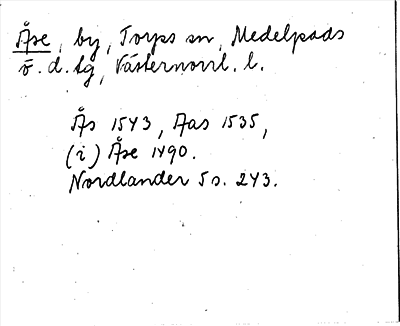 Åse, by, Torps sn, Medelpads
v. d. tg, Västernorrl. l.
Ås 1543, Aas 1535,
(i) Åse 1490.
Nordlander 5 s. 243.